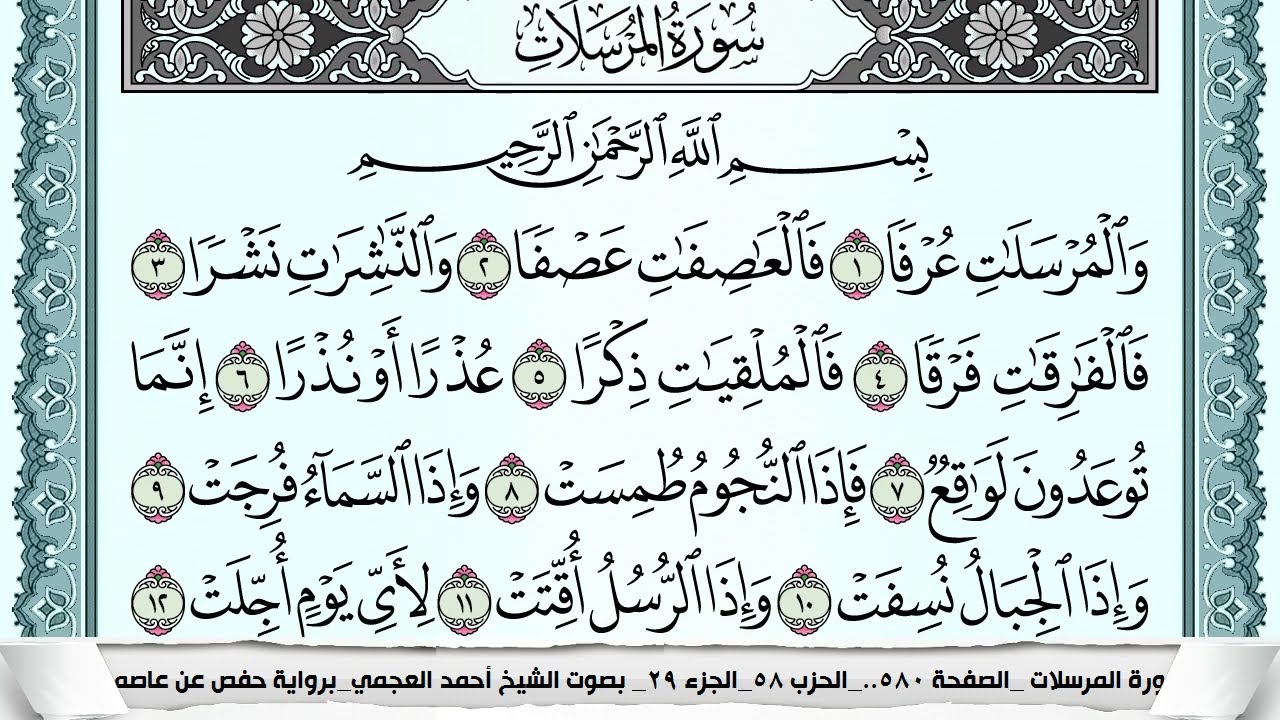 سُورَةُ المُرْسَلَاتِ
بِسْمِ ٱللَّهِ ٱلرَّحْمَٰنِ ٱلرَّحِيمِ
وَٱلْمُرْسَلَٰتِ عُرْفًا ١ فَٱلْعَٰصِفَٰتِ عَصْفًا ٢ وَٱلنَّٰشِرَٰتِ نَشْرًا ٣
فَٱلْفَٰرِقَٰتِ فَرْقًا ٤ فَٱلْمُلْقِيَٰتِ ذِكْرًا ٥ عُذْرًا أَوْ نُذْرًا ٦ إِنَّمَا
تُوعَدُونَ لَوَٰقِعٌ ٧ فَإِذَا ٱلنُّجُومُ طُمِسَتْ ٨ وَإِذَا ٱلسَّمَآءُ فُرِجَتْ ٩
وَإِذَا ٱلْجِبَالُ نُسِفَتْ ١٠ وَإِذَا ٱلرُّسُلُ أُقِّتَتْ ١١ لِأَىِّ يَوْمٍ أُجِّلَتْ ١٢
ورة المرسلات _الصفحة ٥٨٠.._الحزب ٥٨_الجزء ٢٩_ بصوت الشيخ أحمد العجمي_برواية حفص عن عاصم